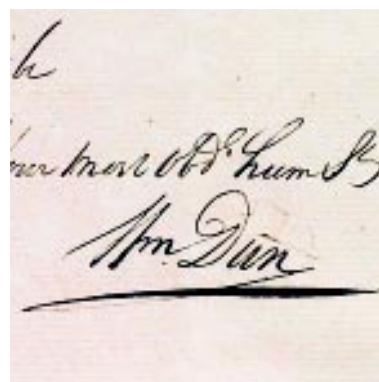 h
our most obdt hum St
Wm. Dun